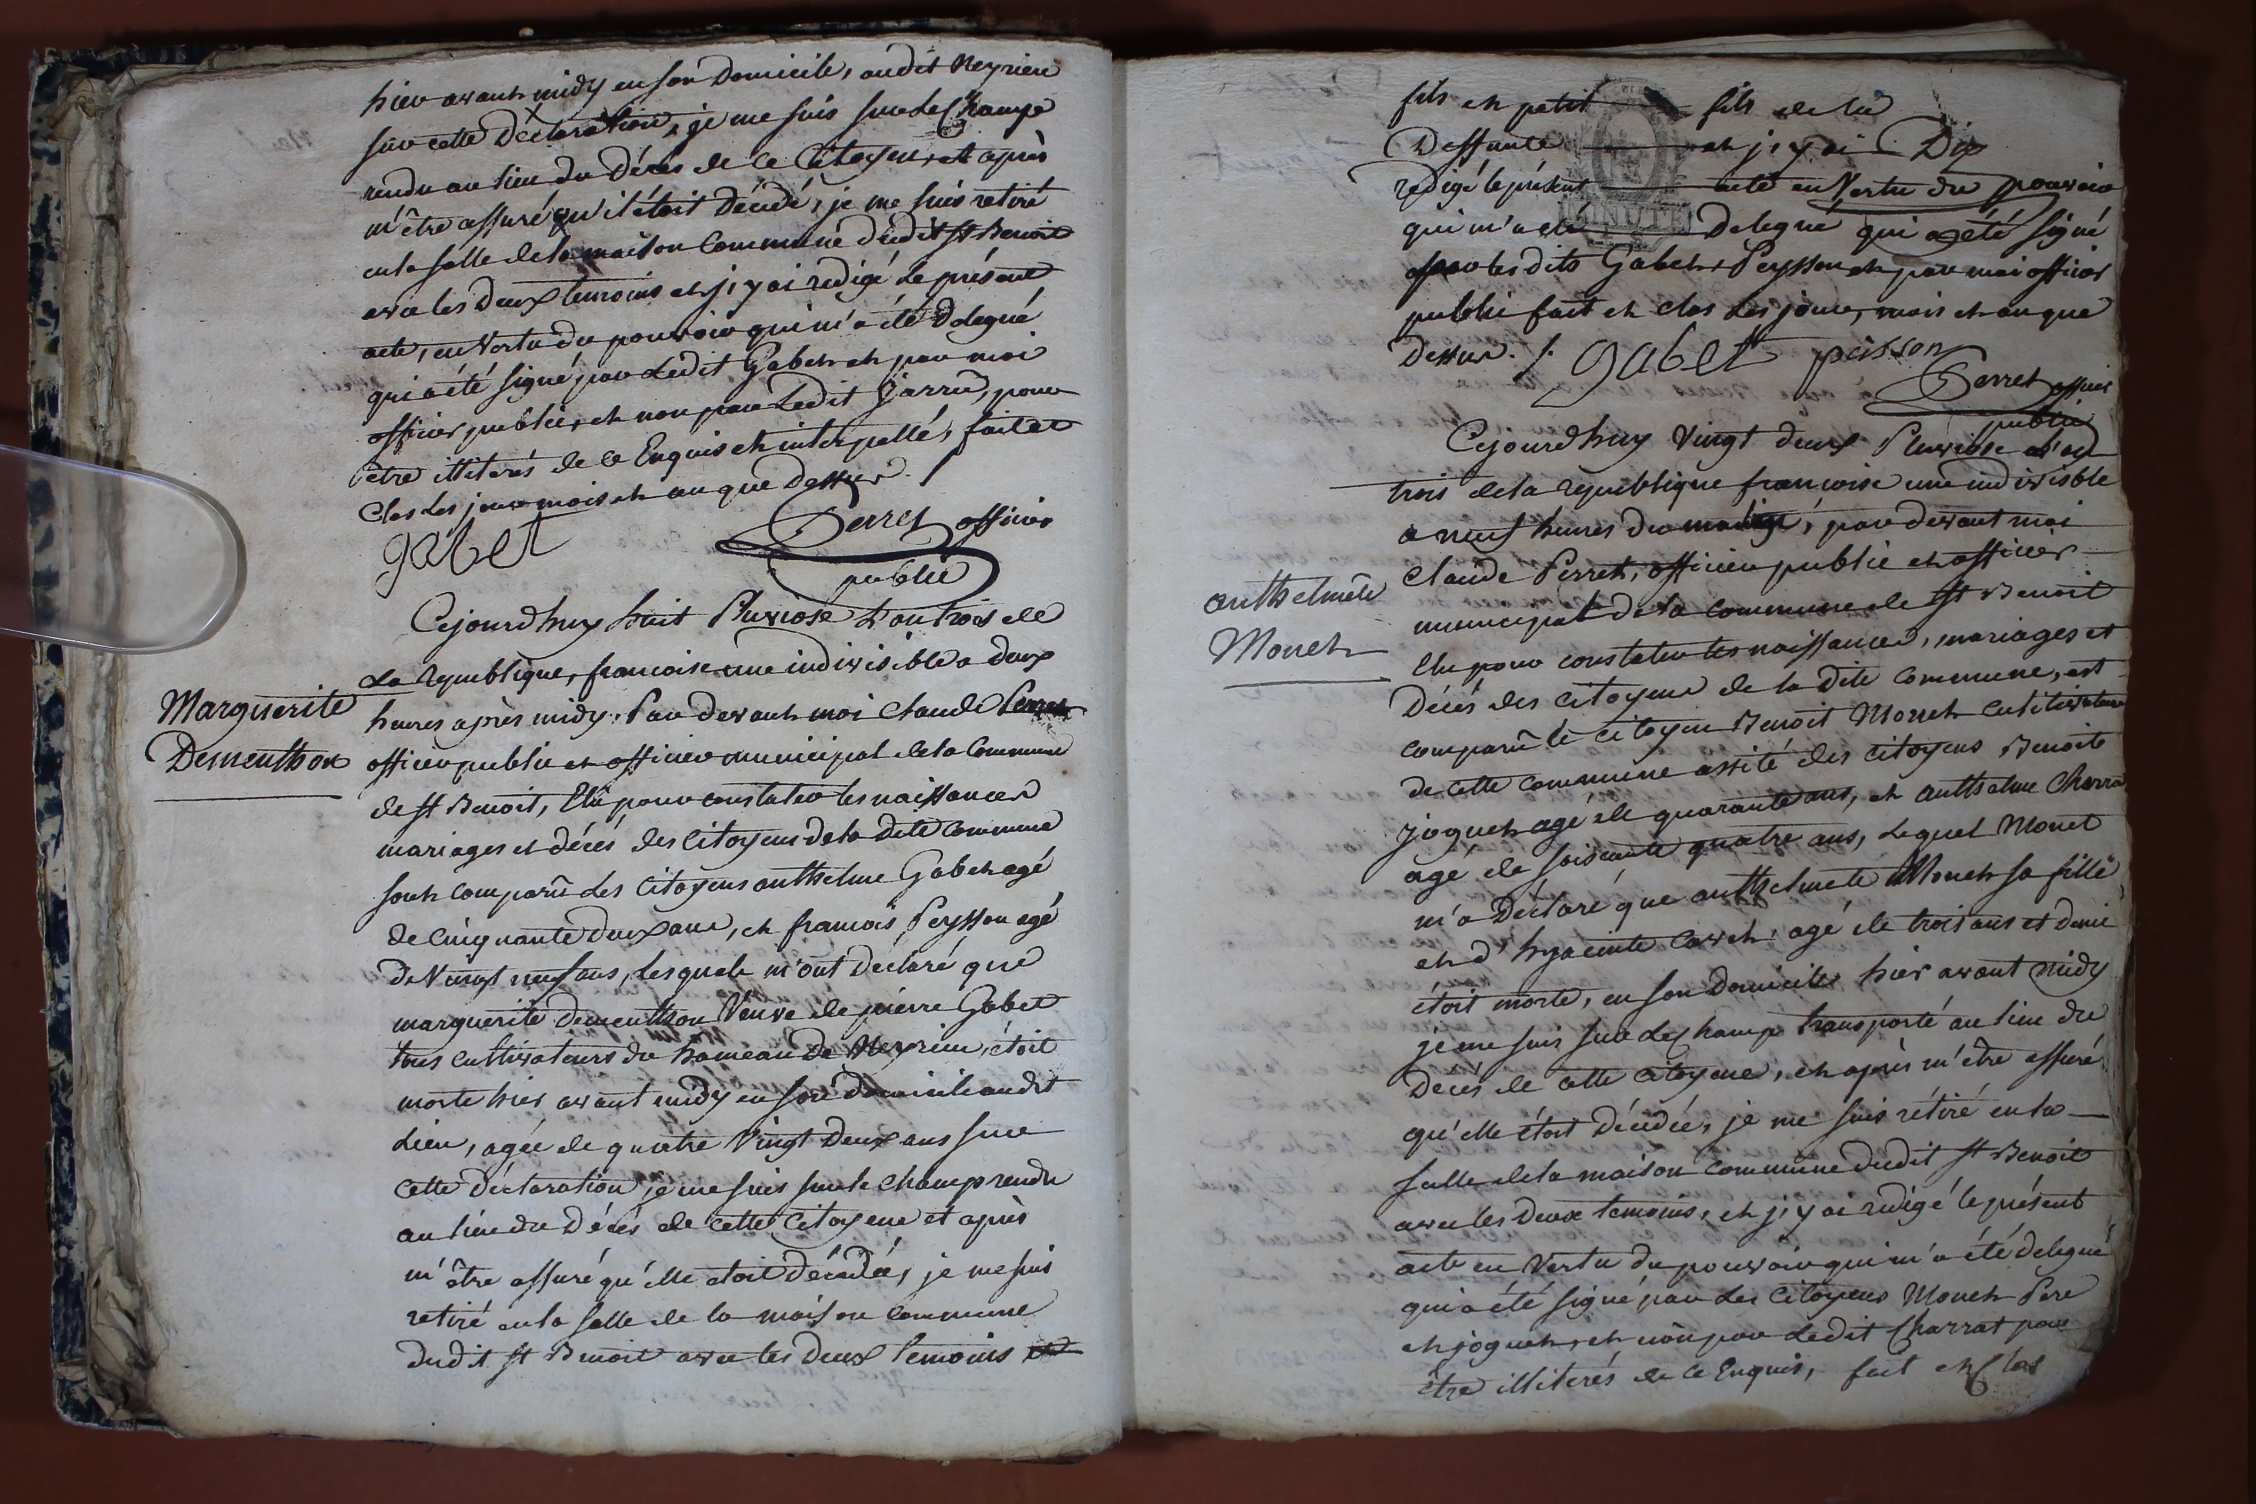 hier avant midy en son Domicile, audit Neyrieu
sur cette Déclaration, je me suis sur le Champ
rendu au lieu du Décès de ce Citoyen, et après
m'être assuré qu'il étoit Décédé, je me suis retiré
en la salle de la maison Commune dudit St Benoit
avec les Deux temoins et j'y ai redigé le présent
acte, en Vertu du pouvoir qui m'a été Delegué
qui a été signé par Ledit Gabet et par moi
officier public, et non par Ledit Jarrin, pour
être illiterés de ce Enquis et interpellé, fait et
Clos Les jour mois et an que Dessus ./
gabet Perret officier
public
Cejourd'huy huit Pluviose L'an trois de
La republique, francoise une indivisible a deux
heures après midy, Par devant moi Claude Perret
officier public et officier municipal de la Commune
de St Benoit, Elû pour constater les naissances
mariages et décés des Citoyens de la dite Commune
sont comparû Les Citoyens anthelme Gabet agé
de Cinquante deux ans, et francois Peysson agé
de Vingt neuf ans, Lesquels m'ont déclaré que
Marguerite
Dementhon
marguerite dementhon Veuve de pierre Gabet
tous cultivateurs du hameau de Neyrieu, étoit
morte hier avant midy en son domicile audit
Lieu, agée de quatre Vingt Deux ans sur
cette déclaration, je me suis sur le champ rendu
au lieu du Décés de cette Citoyene et après
m'être assuré qu'elle etoit décédée, je me suis
retiré en la salle de la maison commune
dudit St Benoit avec les Deux temoins
fils et petit fils de la
Deffunte et j'y ai Dix
redigé le présent acte en Vertu du pouvoir
qui m'a été Delegué qui a été signé
par les dits Gabet, Peysson et par moi officier
public fait et clos Les jour, mois et an que
Dessus ./. gabet peisson
Perret officier
public
Cejourd'huy Vingt deux Pluviose L'an
trois de la republique francoise une indivisible
a neuf heures du matin, par devant moi
Claude Perret, officier public et officier
municipal de la commune de St Benoit
anthelmete
Monet
Elu pour constater les naissances, mariages et
Décés des Citoyens de la Dite Commune, est
comparû le Citoyen Benoit Monet Cultivateur
de cette commune assité des Citoyens Benoit
joguet agé de quarante ans, et anthelme Charra
agé de soisente quatre ans, Lequel Monet
m'a Déclaré que anthelmete Monet sa fille
et d'hyacinte Cavet agé de trois ans et demi
étoit morte, en son Domicile hier avant midy
je me suis sur Le Champ transporté au lieu du
décès de cette Citoyene, et après m'être assuré
qu'elle étoit Décédée, je me suis rétiré en la
salle de la maison commune dudit St Benoit
avec les Deux temoins, et j'y ai redigé le présent
acte en Vertu du pouvoir qui m'a été delegué
qui a été signé par Les Citoyens Monet Pere
et joguet, et non par Ledit Charrat pour
être illiterés de ce Enquis, fait et Clos
MINUTE